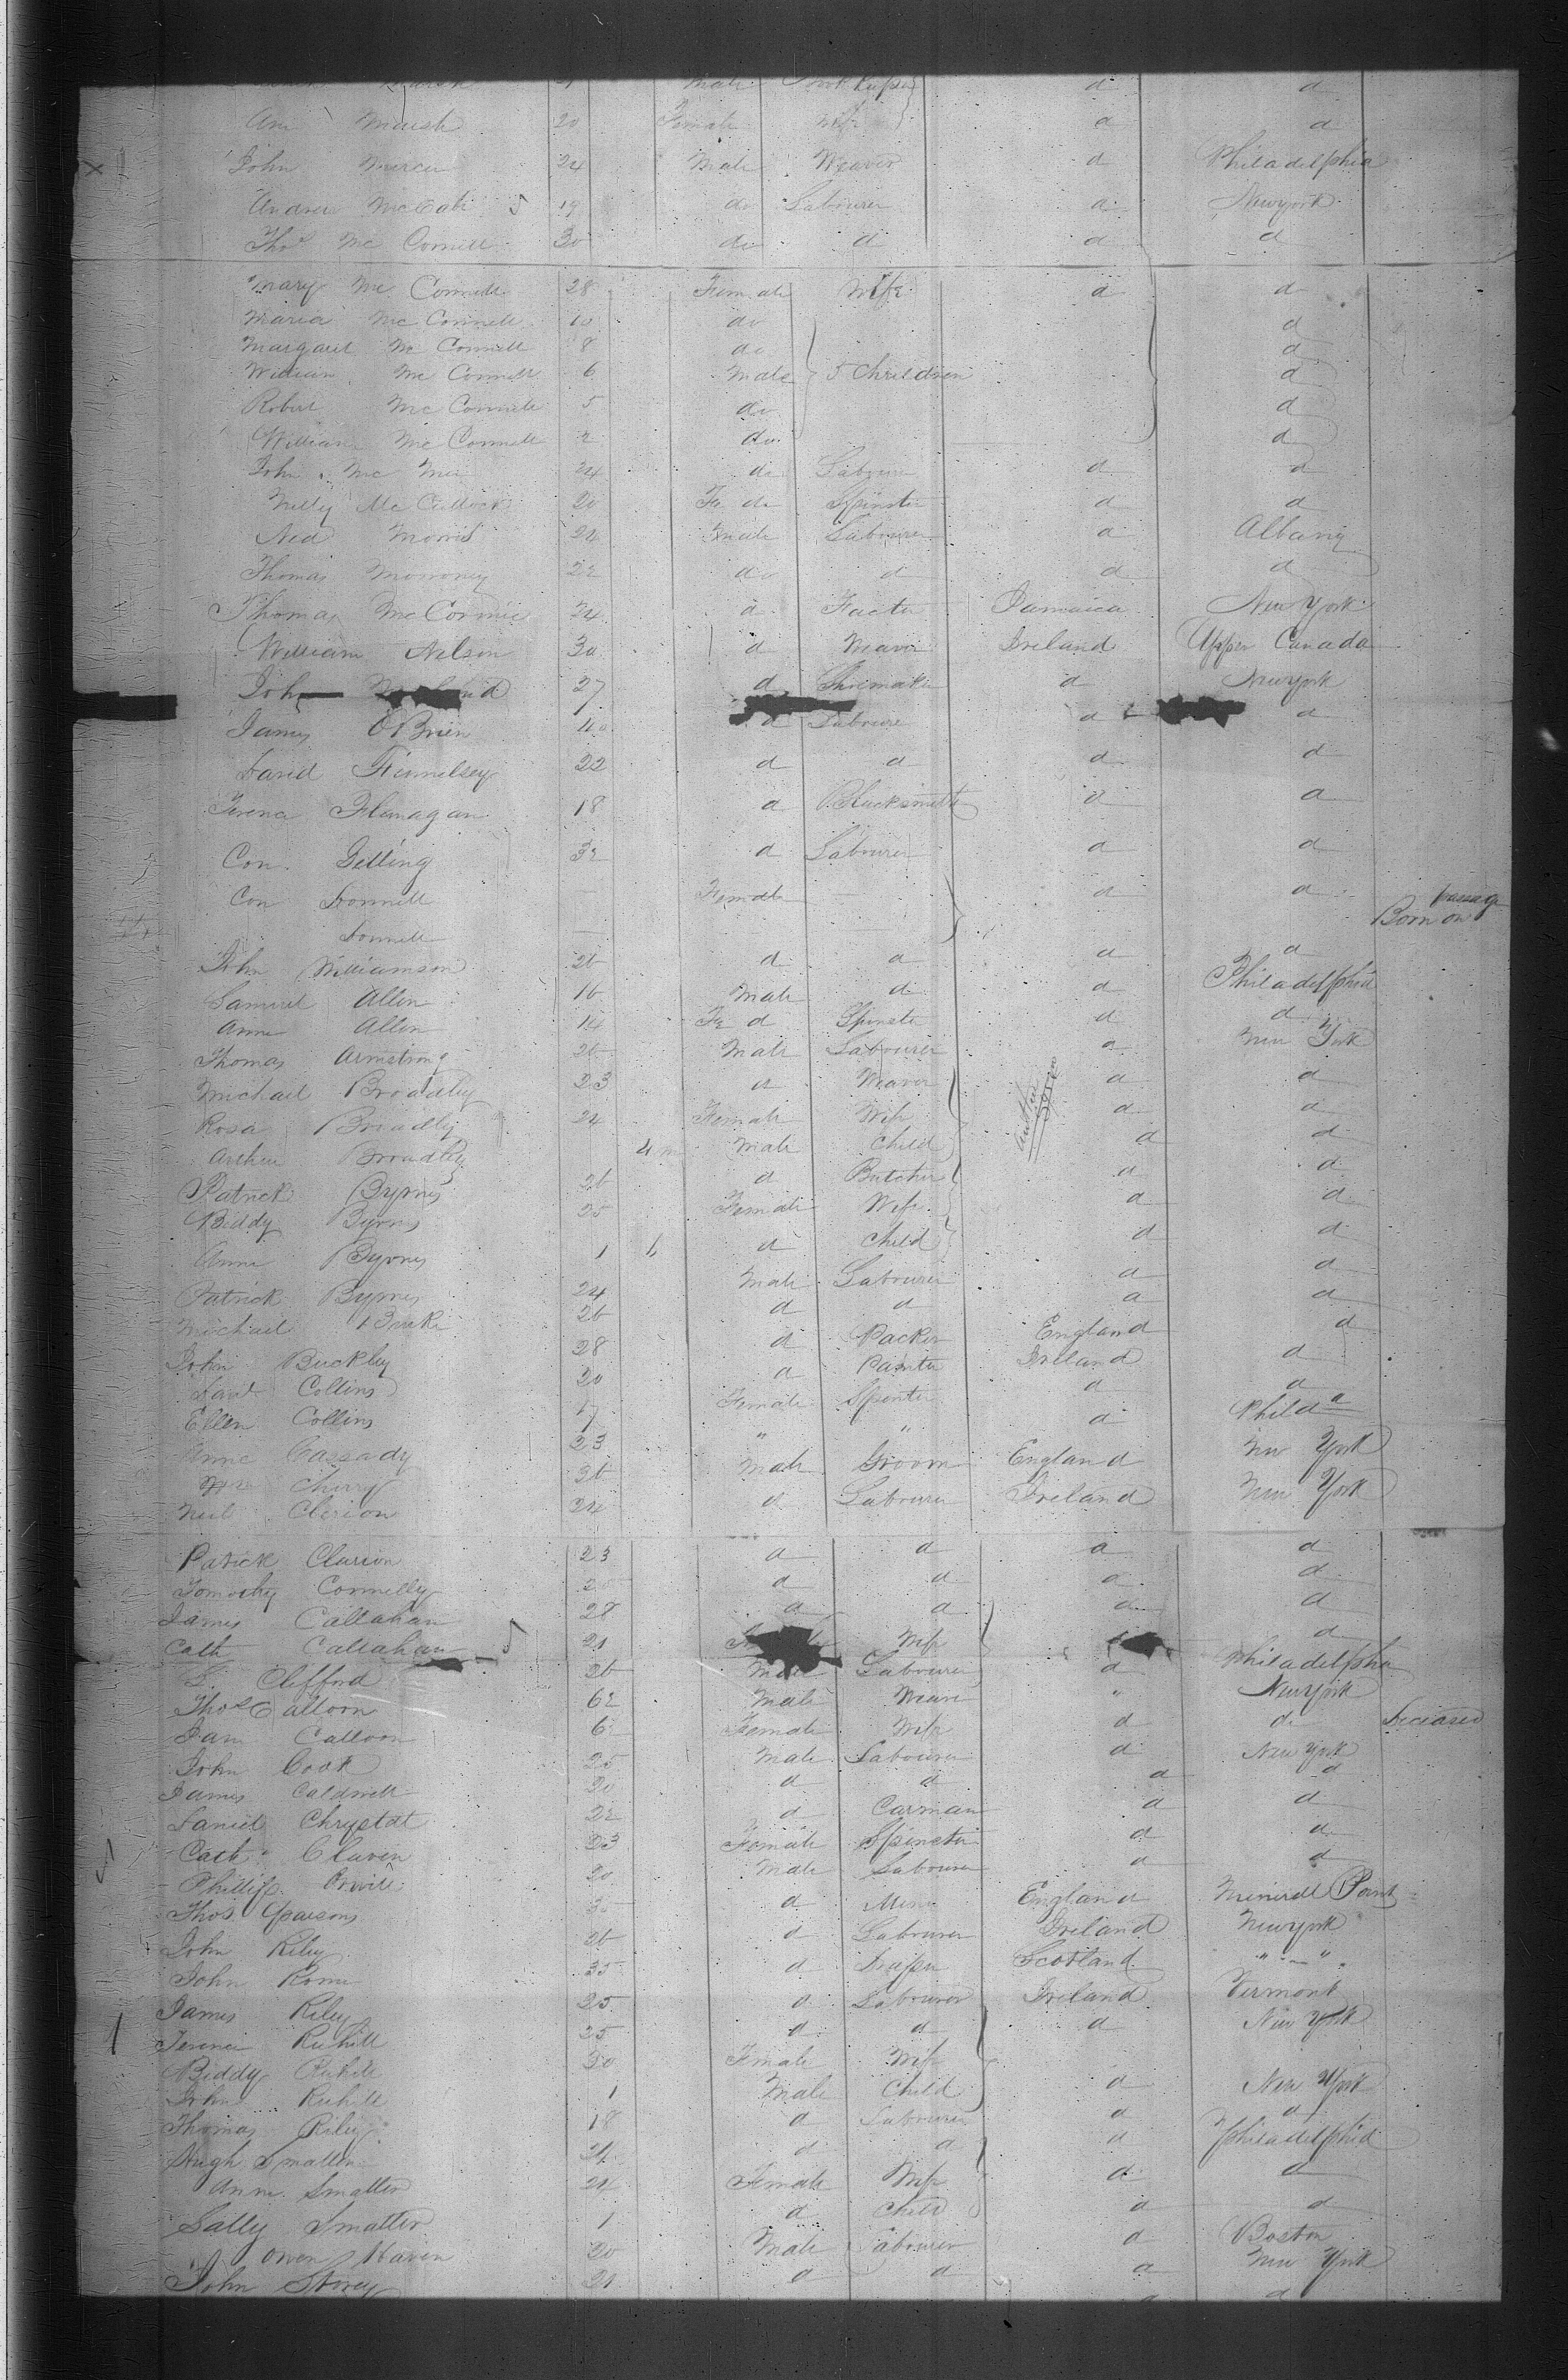 Ann Marsh 20 Female Wife d d
John Mercer 24 Male Weaver d Philadelphia
Andrew McCabe 19 do Labourer d Newyork
Thos Mc Connell 30 do d d d
Mary Mc Connell 28 Female Wife d d
Maria Mc Connell 10 do d
Margaret Mc Connell 8 do d
William Mc Connell 6 Male 5 Children d
Robert Mc Connell 5 do d
William Mc Connell 2 do d
John Mc 24 do Labourer d d
Nelly Mc 20 Fe do Spinster d d
Ned Morris 24 Male Labourer d Albany
Thomas Moroney 22 do d d d
Thomas McCormic 24 d Factor Jamaica New York
William Nelson 30 d Weaver Ireland Upper Canada
John 27 d Shoemaker d Newyork
James O'Brien 40 d Labourer d d
David 22 d d d d
Terence Flanagan 18 d Blacksmith d d
Con Gelling 32 d Labourer d d
Con Donnell — Female — d d passage
Donnell — Born on
John Williamson 26 d d d d
Samuel Allen 16 Male d d Philadelphia
Anne Allen 14 Fe d Spinster d d
Thomas Armstrong 26 Male Labourer d New York
Michael Broadley 23 d Weaver d d
Rosa Broadly 24 Female Wife d d
Arthur Broadley 4 m Male Child d d
Patrick Byrnes 26 d Butcher d d
Biddy Byrns 25 Female Wife d d
Anne Byrnes 1 6 d Child d d
Patrick Byrnes 24 Male Labourer d d
Michael Burke 26 d d d d
John Buckley 28 d Packer England d
Danl Collins 20 d Painter Ireland d
Ellen Collins 17 Female Spinster d d
Anne Cassady 23 " " d Philda
Wm Cherry 26 Male Groom England New York
Neil Clerion 24 d Labourer Ireland New York
Patrick Clarion 23 d d d d
Tomothy Connelly 20 d d d d
James Callahan 28 d d d d
Cath Callahan 21 Wife d
Clifford 26 Male Labourer d Philadelphia
Thos Calloon 62 Male Weaver " Newyork
Calloon 62 Female Wife d do Deceased
John Cook 25 Male Labourer d New York
James Caldwell 20 d d d d
Daniel Chrystal 22 d Carman d d
Cath Claven 23 Female Spinster d d
Phillip 20 Male Labourer d d
Thos Parsons d Miner England Minerall Point
John Riley 26 d Labourer Ireland Newyork
John Rome 35 d Draper Scotland " — "
James Riley 25 d Labourer Ireland Vermont
Terence Ruhill 25 d d d New York
Biddy Ruhill 30 Female Wife
John Ruhill 1 Male Child d New York
Thomas Riley 18 d Labourer d d
Hugh Smatter 24 d d d Philadelphia
Anne Smatter 24 Female Wife d d
Sally Smatter 1 d Child d d
Owen Haven 20 Male Labourer d Boston
John Storey 21 d d d New York